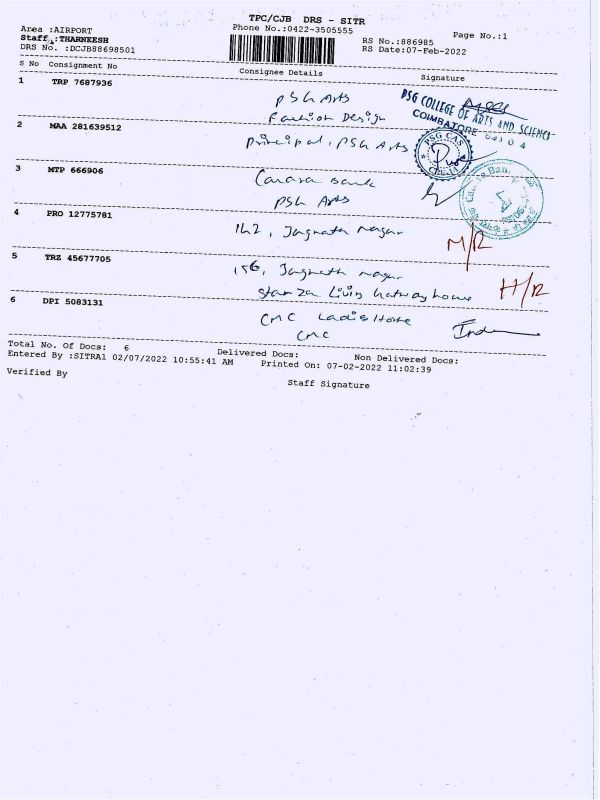 TPC/CJB DRS - SITR
Area :AIRPORT Phone No.:0422-3505555 Page No.:1
Staff :THARNEESH RS No.:886985
DRS No. :DCJB88698501 RS Date:07-Feb-2022
S No Consignment No Consignee Details Signature
1 TRP 7687936 PSG Arts
Fashion Design
PSG COLLEGE OF ARTS AND SCIENCE
COIMBATORE
2 MAA 281639512 Principal, PSG Arts
PSG CAS
3 MTP 666906 Canara Bank
PSG Arts
4 PRO 12775781 142, Jagnath Nagar M/R
5 TRZ 45677705 156, Jagnath Nagar H/R
Stanza Living house
6 DPI 5083131 CMC Ladies Hostel
CMC
Total No. Of Docs: 6 Delivered Docs: Non Delivered Docs:
Entered By :SITRA1 02/07/2022 10:55:41 AM Printed On: 07-02-2022 11:02:39
Verified By Staff Signature